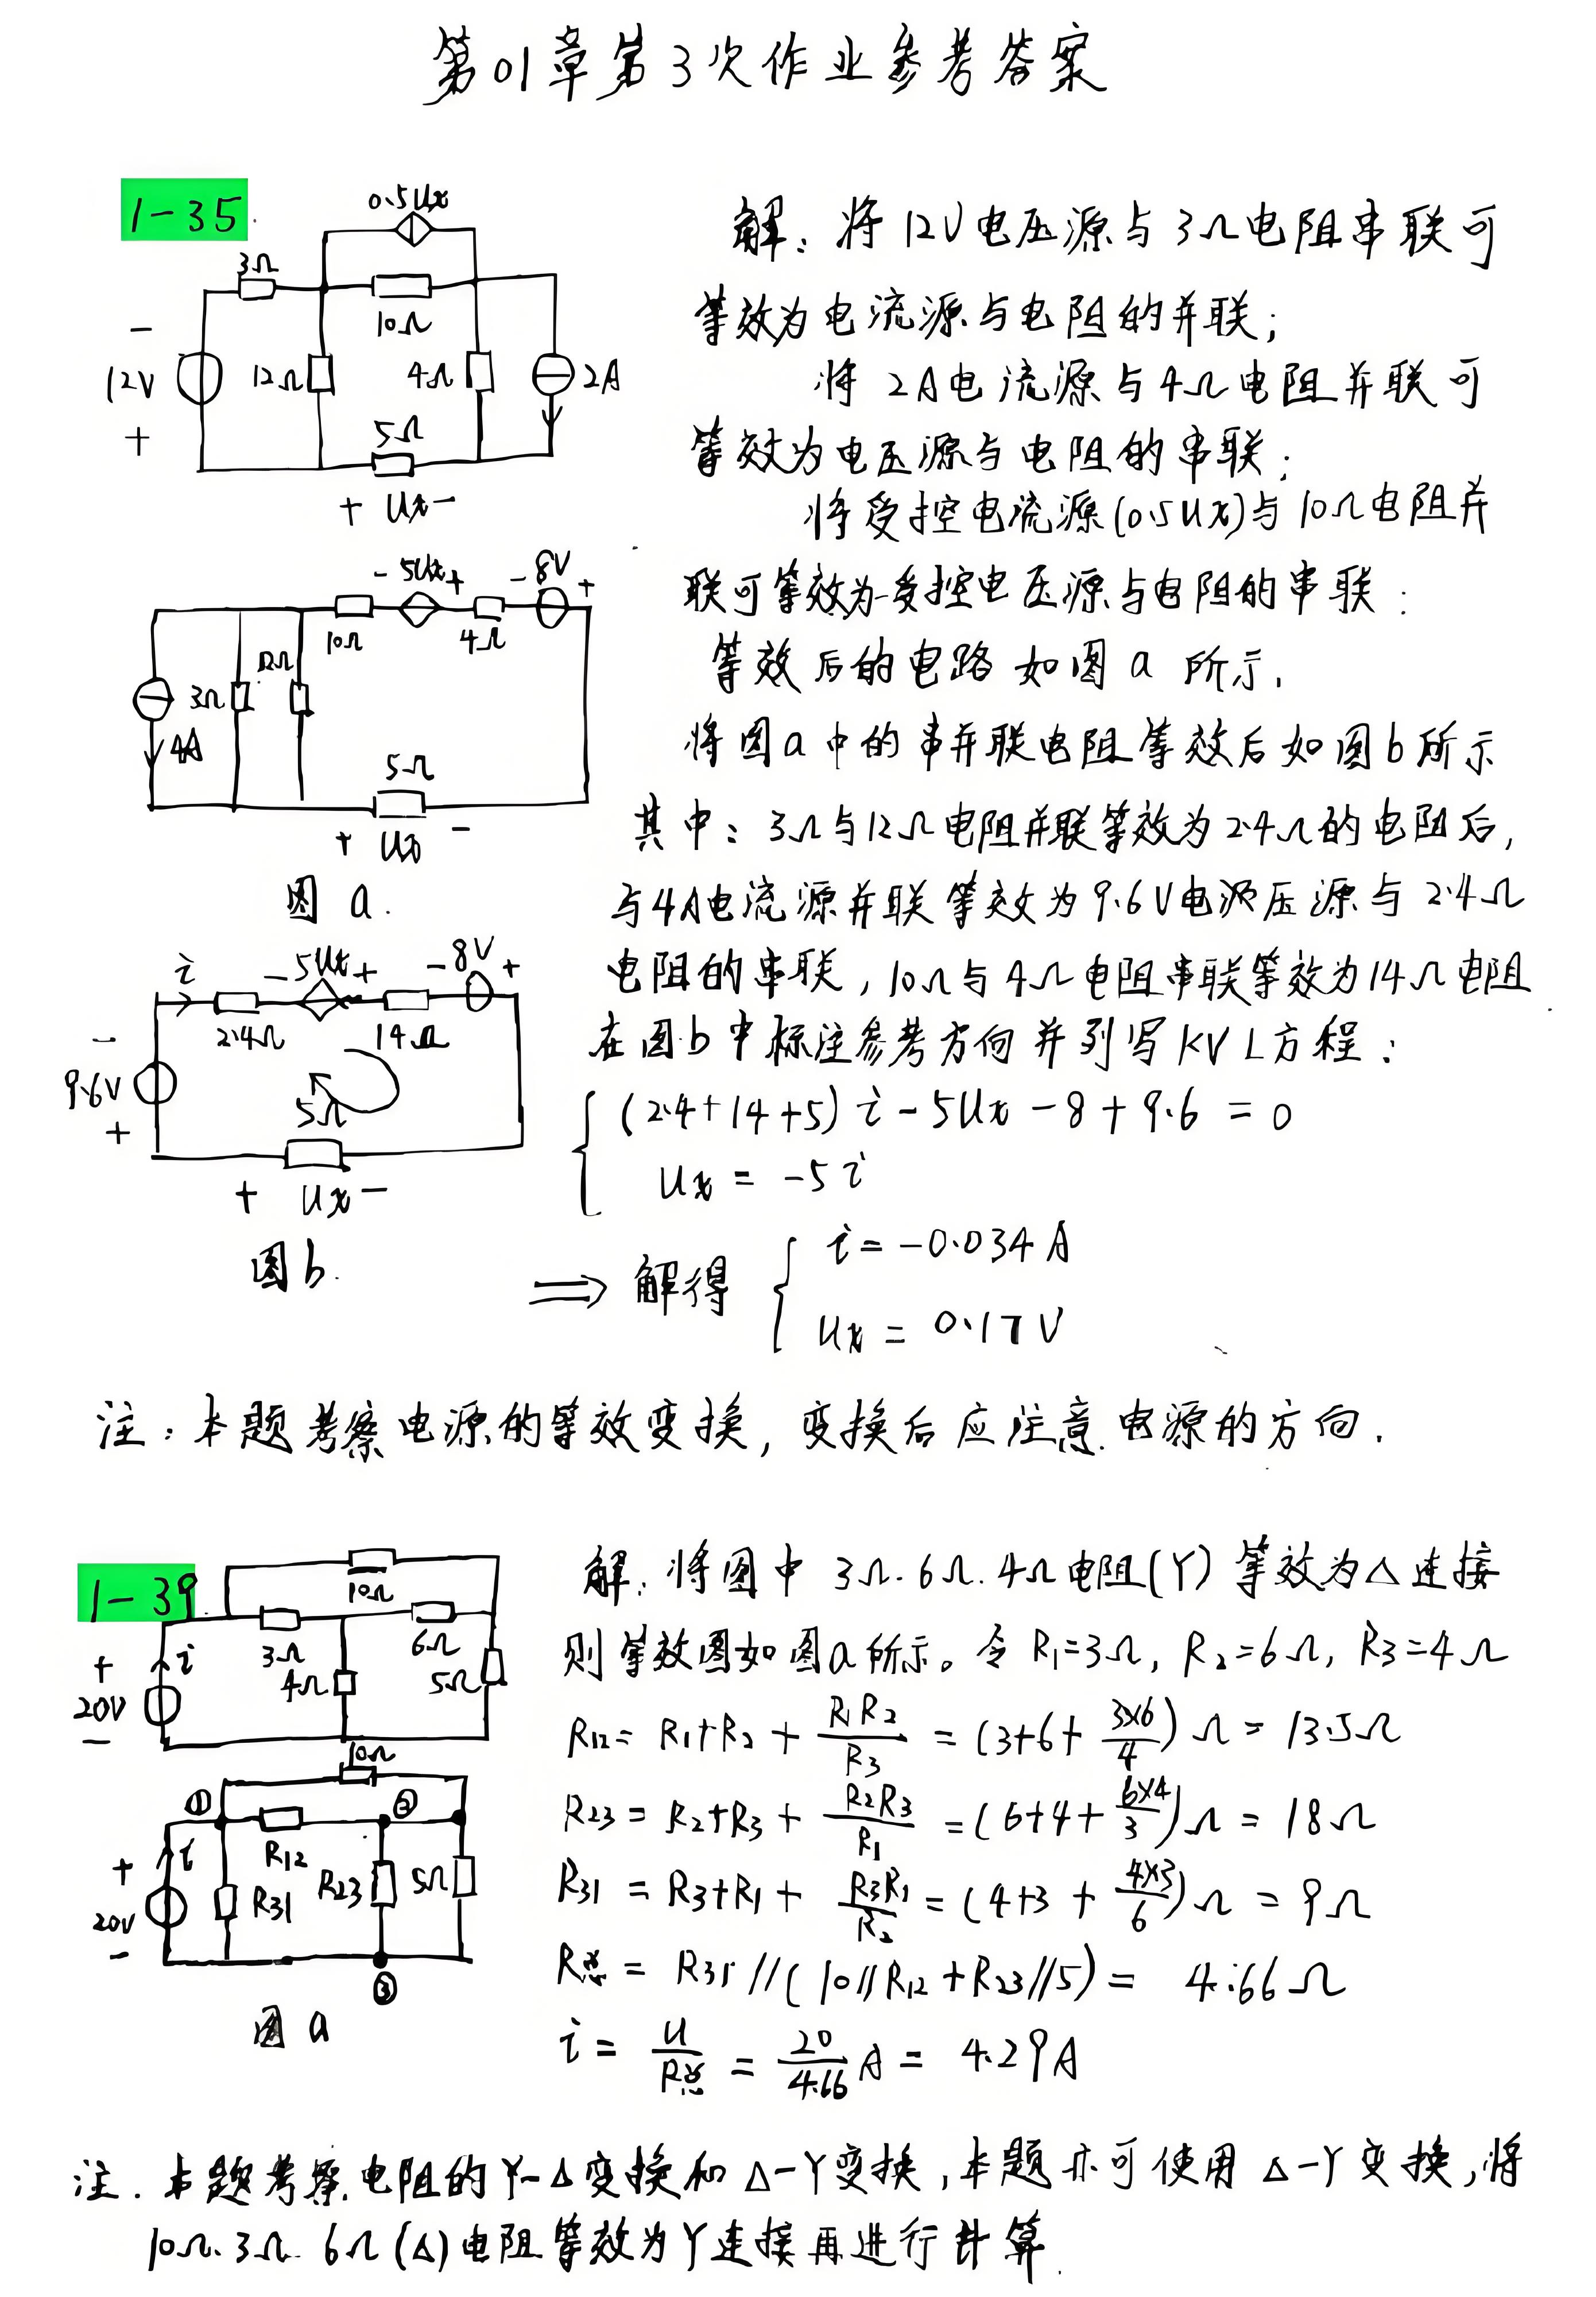 第01章第3次作业参考答案
1-35
0.5Ux
3Ω
10Ω
-
12V
+
12Ω
4Ω
2A
5Ω
+ Ux -
解: 将12V电压源与3Ω电阻串联可
等效为电流源与电阻的并联;
将 2A电流源与4Ω电阻并联可
等效为电压源与电阻的串联;
将受控电流源(0.5Ux)与10Ω电阻并
联可等效为受控电压源与电阻的串联:
等效后的电路如图a 所示.
- 5Ux + - 8V +
10Ω
4Ω
12Ω
3Ω
4A
5Ω
+ Ux -
图 a.
将图a中的串并联电阻等效后如图b所示
其中: 3Ω与12Ω电阻并联等效为2.4Ω的电阻后,
与4A电流源并联等效为9.6V电源压源与2.4Ω
电阻的串联,10Ω与4Ω电阻串联等效为14Ω电阻
在图b中标注参考方向并列写KVL方程:
i - 5Ux + - 8V +
2.4Ω
14Ω
-
9.6V
+
5Ω
+ Ux -
图b.
(2.4+14+5) i - 5Ux - 8 + 9.6 = 0
Ux = -5i
⇒ 解得
i = -0.034 A
Ux = 0.17 V
注:本题考察电源的等效变换,变换后应注意电源的方向.
1-39
10Ω
3Ω
6Ω
+ i
20V
-
4Ω
5Ω
解:将图中 3Ω.6Ω.4Ω电阻(Y) 等效为△连接
则等效图如图a所示。令 R1=3Ω, R2=6Ω, R3=4Ω
R12= R1+R2 + R1R2/R3 = (3+6+ 3×6/4) Ω = 13.5Ω
R23 = R2+R3 + R2R3/R1 = (6+4+ 6×4/3)Ω = 18Ω
R31 = R3+R1 + R3R1/R2 = (4+3 + 4×3/6)Ω = 9Ω
R总 = R31 //(10//R12 +R23//5) = 4.66Ω
i = U/R总 = 20/4.66 A = 4.29A
10Ω
① ②
R12
+ i
20V
-
R31
R23
5Ω
③
图 a
注.本题考察电阻的Y-△变换和△-Y变换,本题亦可使用△-Y变换,将
10Ω.3Ω.6Ω(△)电阻等效为Y连接再进行计算.